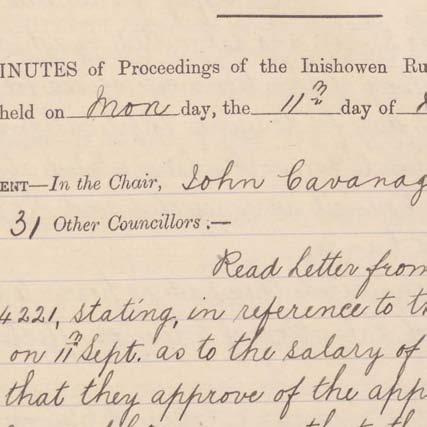 INUTES of Proceedings of the Inishowen Ru
held on Mon day, the 11th day of
ENT—In the Chair, John Cavanag
31 Other Councillors :—
Read Letter from
4221, stating, in reference to th
on 11th Sept. as to the salary of
that they approve of the app